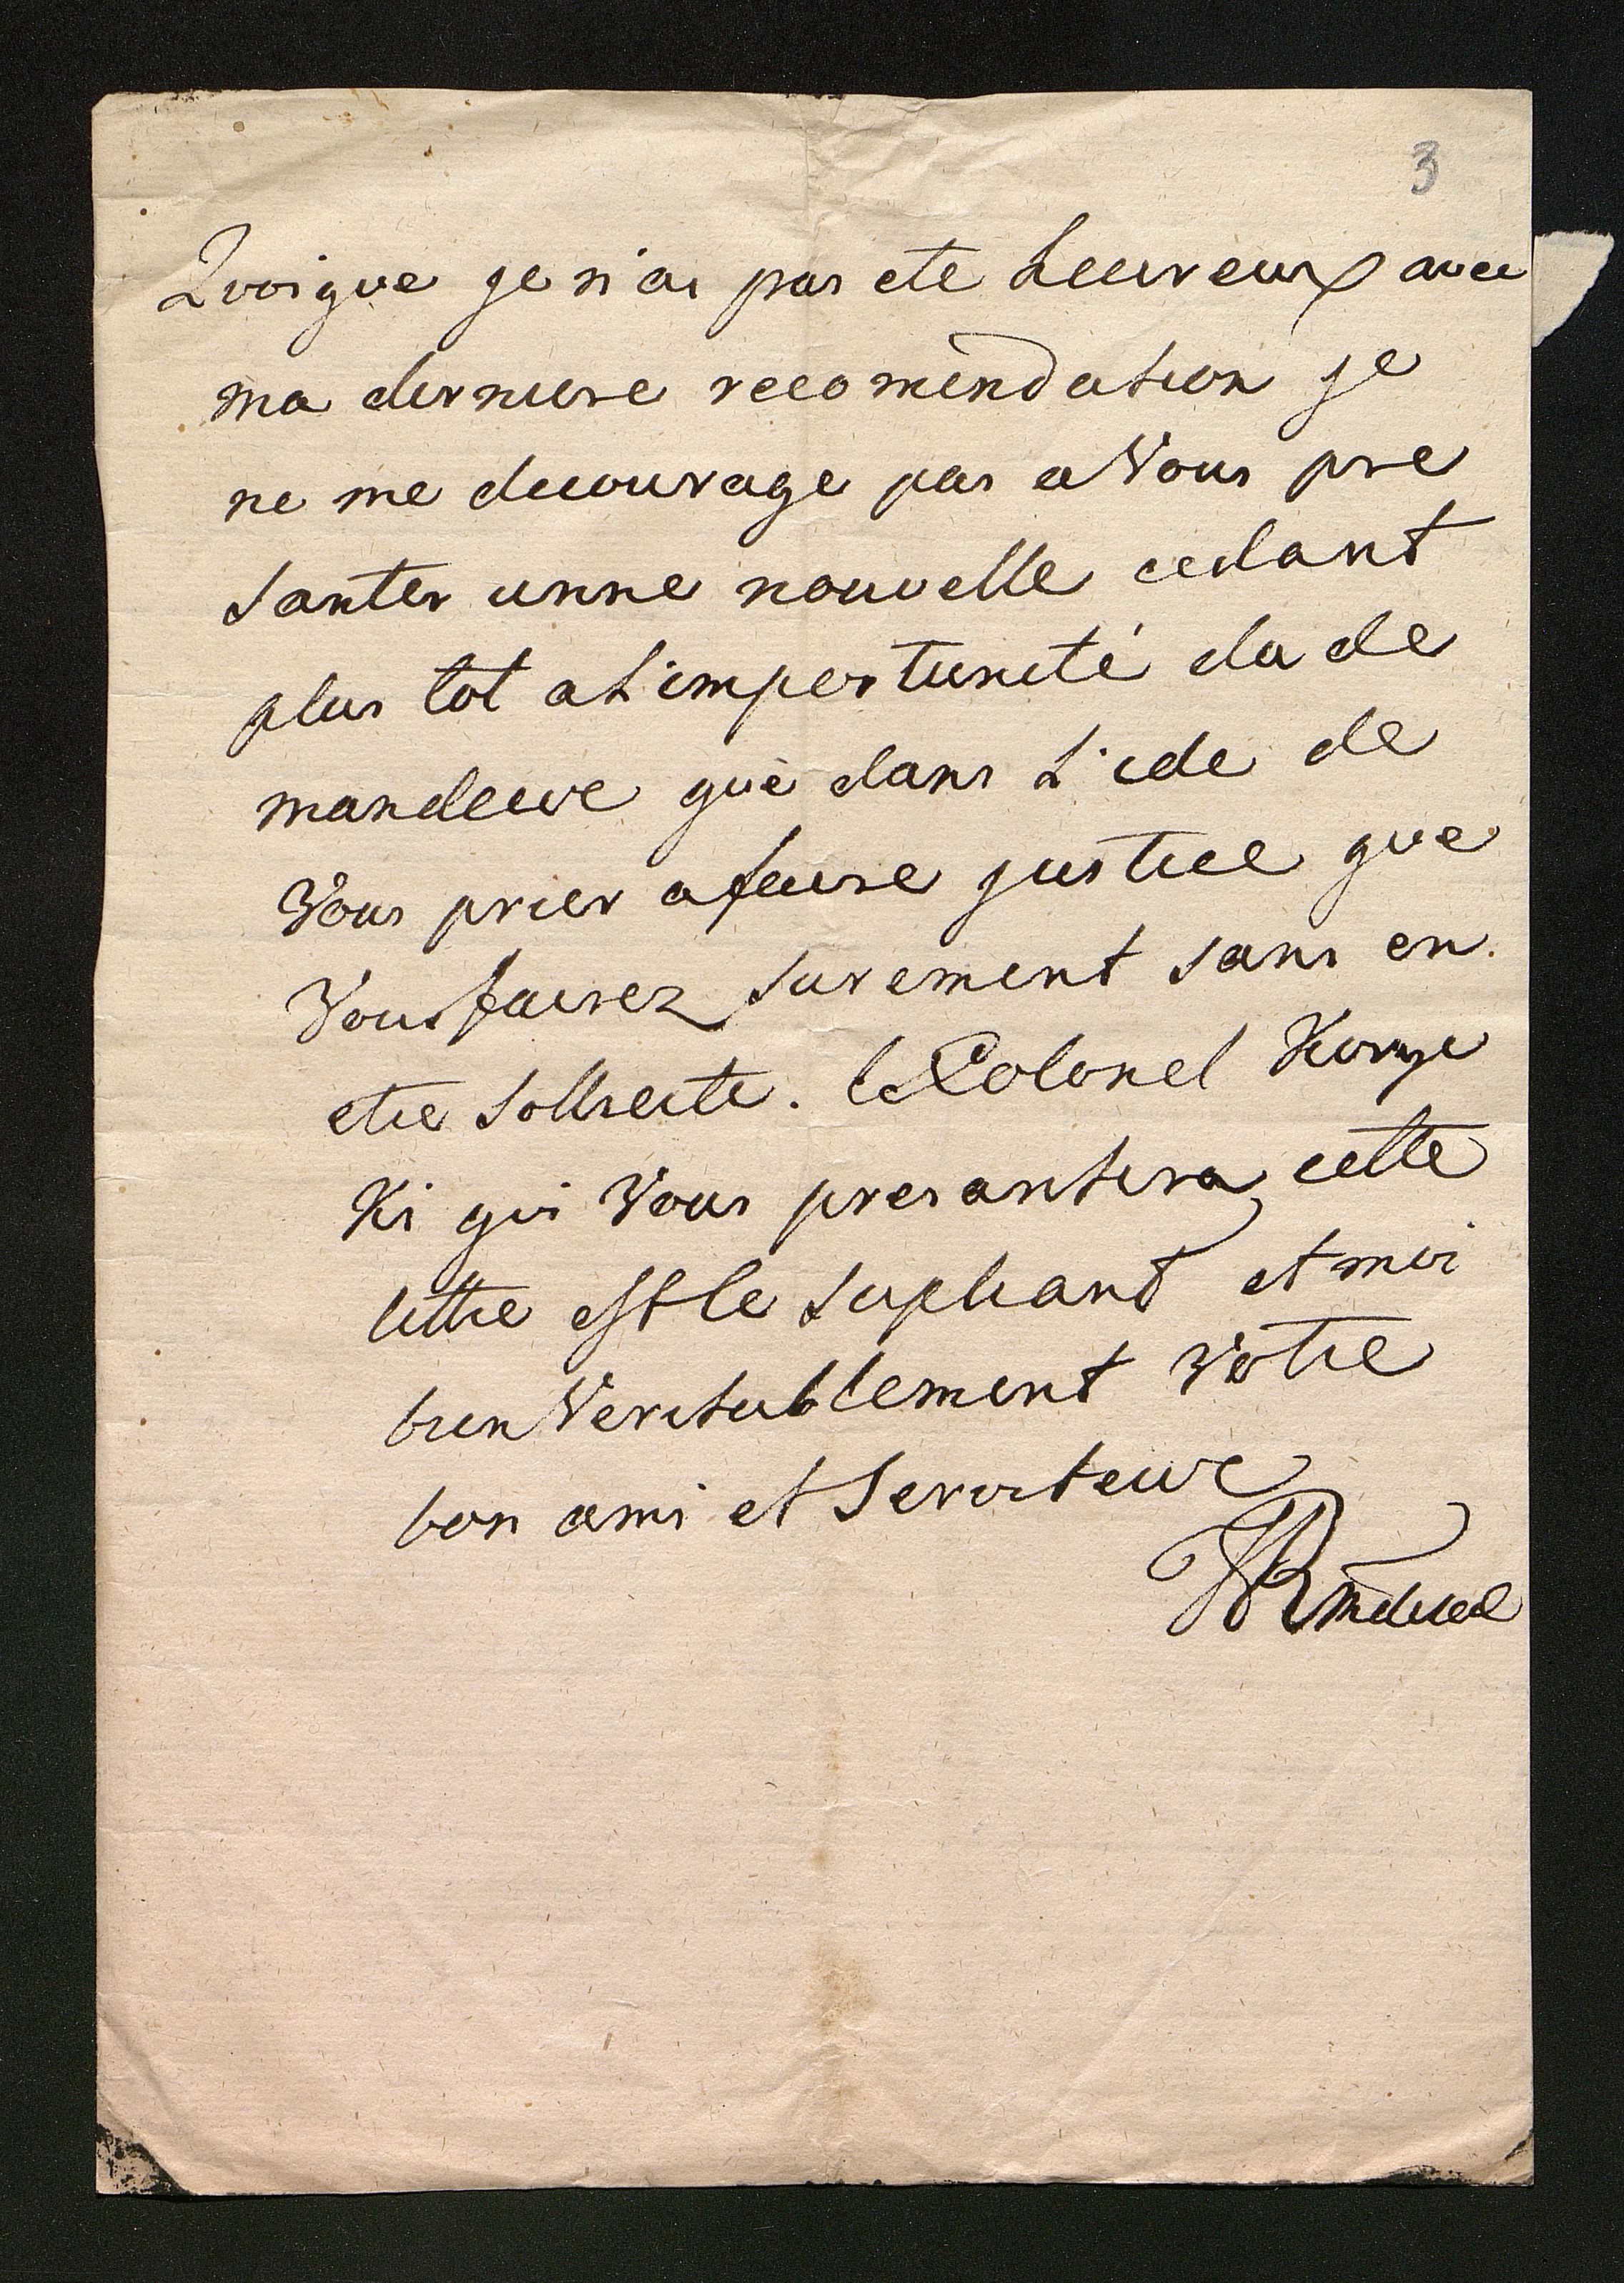 3
Qvoique je n'ai pas ete heureux avec
ma derniere recomendation je
ne me decourage pas a Vous pre
santer unne nouvelle cedant
plus tot a L'importunité du de
mandeure que dans L'ide de
Vous prier a faire justice que
Vous fairez surement sans en
etre sollicite. le Colonel
Ki qui Vous presantera cette
lettre est le supliant et moi
bien Veritablement Votre
bon ami et Serviteure